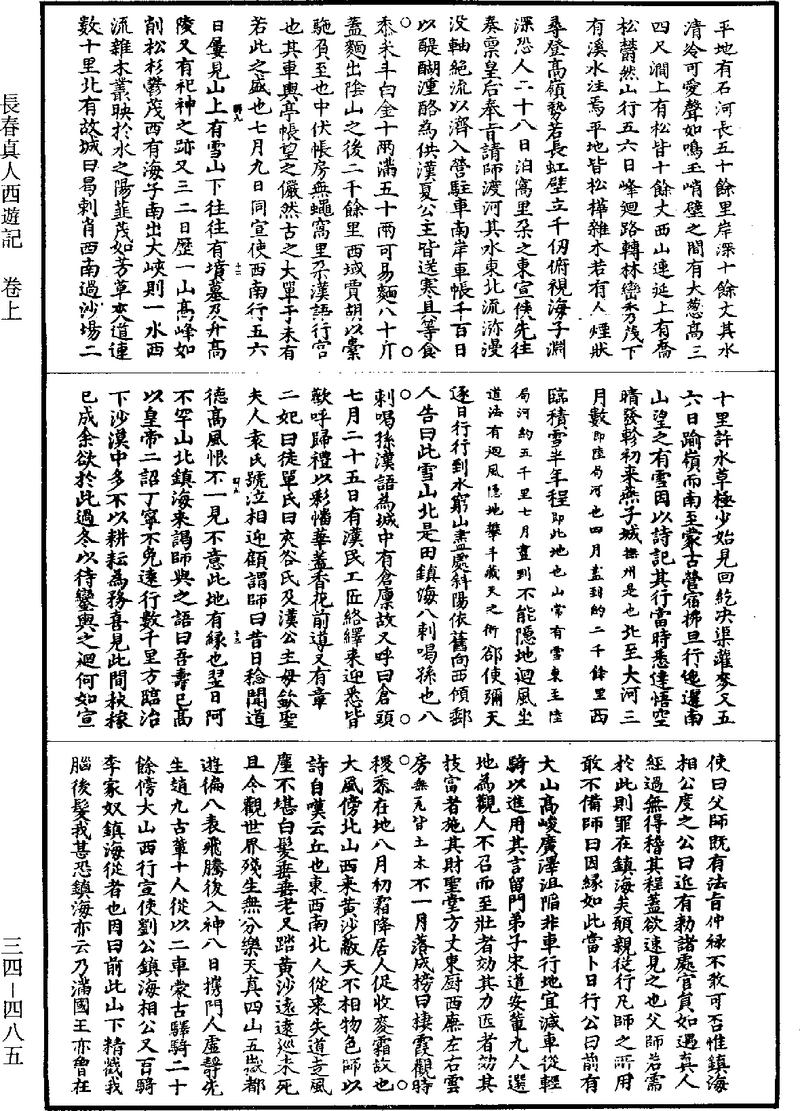 長春真人西遊記　卷上
平地有石河長五十餘里岸深十餘丈其水
清泠可愛聲如鳴玉峭壁之間有大葱高三
四尺澗上有松皆十餘丈西山連延上有喬
松欝然山行五六日峰迴路轉林巒秀茂下
有溪水注焉平地皆松樺雜木若有人煙狀
尋登高嶺勢若長虹壁立千仞俯視海子淵
深恐人二十八日泊窩里朵之東宣使先往
奏稟皇后奉旨請師渡河其水東北流瀰漫
沒軸絶流以濟入營駐車南岸車帳千百日
以醍醐湩酪為供漢夏公主皆送寒具等食
黍米斗白金十兩滿五十兩可易麵八十斤
蓋麵出陰山之後二千餘里西域賈胡以橐
駞負至也中伏帳房無蠅窩里朵漢語行宫
也其車輿亭帳望之儼然古之大單于未有
若此之盛也七月九日同宣使西南行五六
日屢見山上有雪山下往往有墳墓及升高
陵又有祀神之跡又三二日歷一山高峰如
削松杉欝茂西有海子南出大峽則一水西
流雜木叢映於水之陽韮茂如芳草夾道連
數十里北有故城曰曷剌肖西南過沙場二
十里許水草極少始見回紇決渠灌麥又五
六日踰嶺而南至蒙古營宿拂旦行迤邐南
山望之有雪因以詩記其行當時悉達悟空
晴發軫初來燕子城撫州是也北至大河三
月數即陸局河也四月盡到約二千餘里西
臨積雪半年程即此地也山常有雪東至陸
局河約五千里七月盡到不能隱地迴風坐
道法有迴風隱地攀斗藏天之術却使彌天
逐日行行到水窮山盡處斜陽依舊向西傾郵
人告曰此雪山北是田鎮海八剌喝孫也八
剌喝孫漢語為城中有倉廪故又呼曰倉頭
七月二十五日有漢民工匠絡繹來迎悉皆
歡呼歸禮以彩幡華蓋香花前導又有章
二妃曰徒單氏曰夾谷氏及漢公主母欽聖
夫人袁氏號泣相迎顧謂師曰昔日稔聞道
德高風恨不一見不意此地有緣也翌日阿
不罕山北鎮海來謁師與之語曰吾壽已高
以皇帝二詔丁寧不免遠行數千里方臨治
下沙漠中多不以耕耘為務喜見此間秋稼
已成余欲於此過冬以待鑾輿之迴何如宣
使曰父師既有法旨仲祿不敢可否惟鎮海
相公度之公曰近有勅諸處官員如遇真人
經過無得稽其程蓋欲速見之也父師若需
於此則罪在鎮海矣願親從行凡師之所用
敢不備師曰因緣如此當卜日行公曰前有
大山高峻廣澤沮陷非車行地宜減車從輕
騎以進用其言留門弟子宋道安輩九人選
地為觀人不召而至壯者効其力匠者効其
技富者施其財聖堂方丈東厨西廡左右雲
房無瓦皆土木不一月落成榜曰棲霞觀時
稷黍在地八月初霜降居人促收麥霜故也
大風傍北山西來黄沙蔽天不相物色師以
詩自嘆云丘也東西南北人從來失道走風
塵不堪白髮垂垂老又踏黄沙遠遠巡未死
且令觀世界殘生無分樂天真四山五嶽都
遊徧八表飛騰後入神八日携門人虛靜先
生趙九古輩十人從以二車蒙古驛騎二十
餘傍大山西行宣使劉公鎮海相公又百騎
李家奴鎮海從者也因曰前此山下精截我
腦後髮我甚恐鎮海亦云乃滿國王亦曾在
三四－四八五